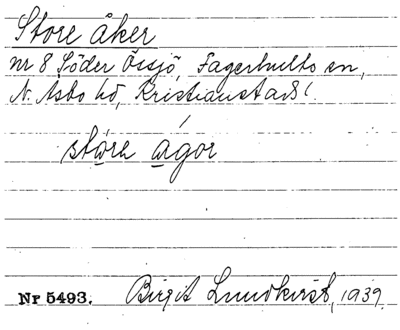 Store åker
nr 8 Söder Össjö, Fagerhults sn,
N. Åsbo hd, Kristianstads l.
störe agor
Nr 5493. Birgit Lundkvist, 1939.